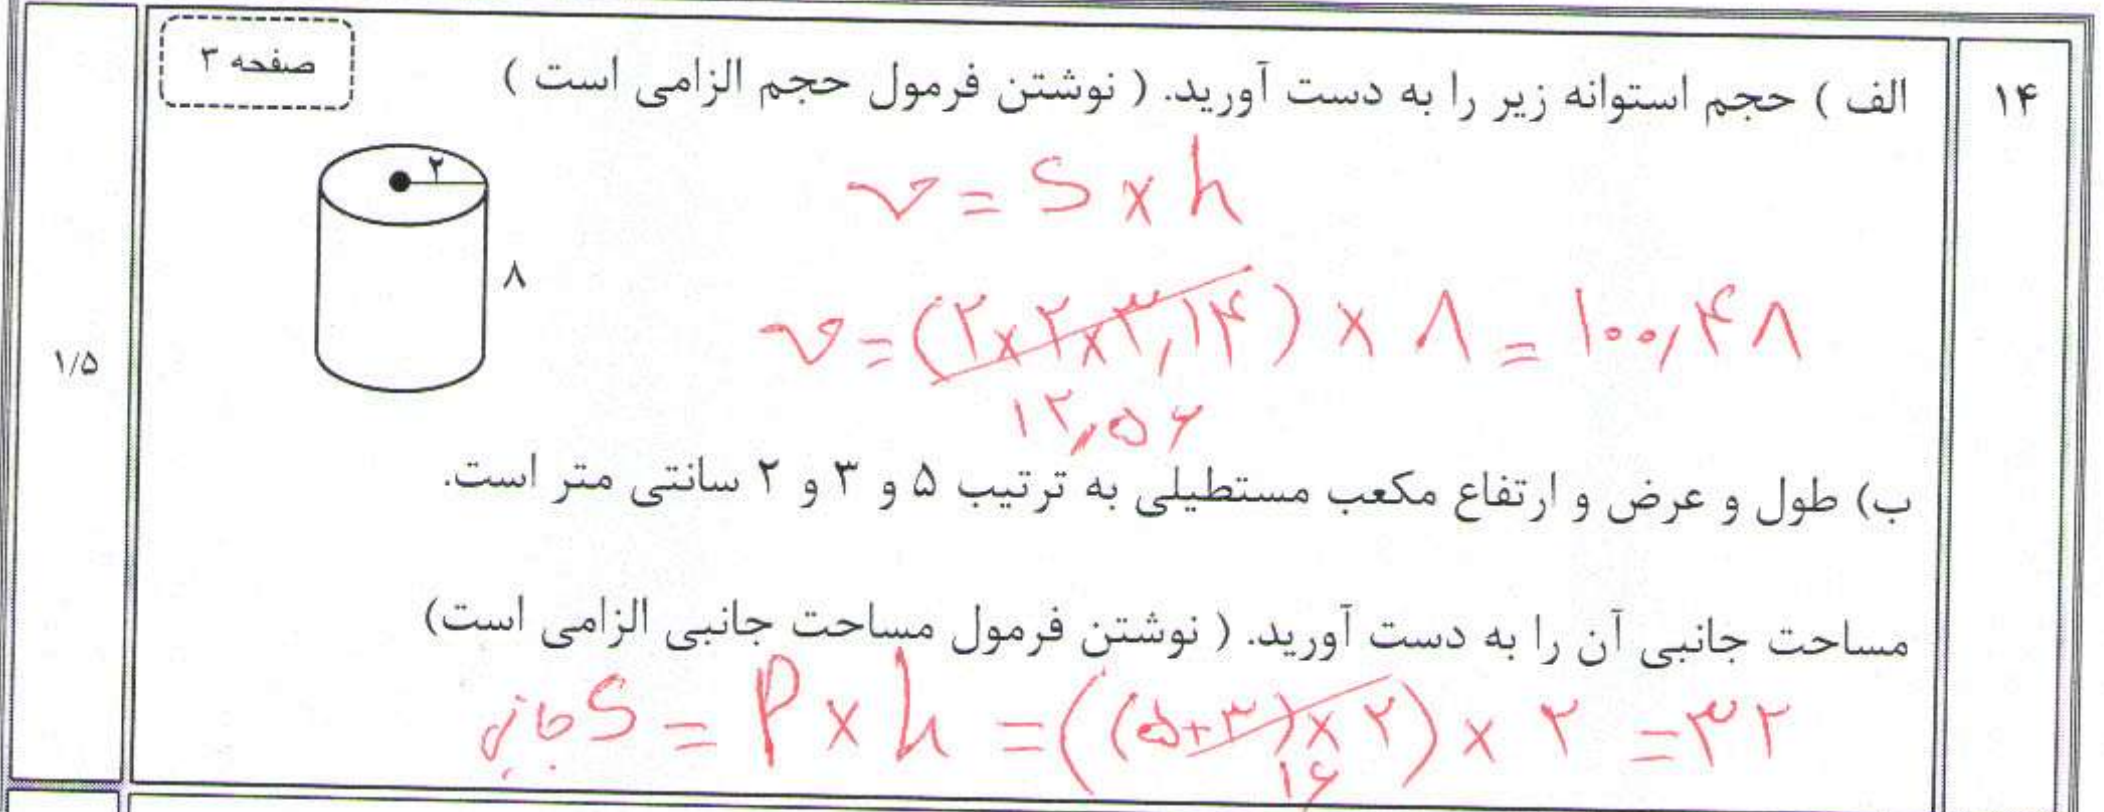 صفحه ۳
۱۴
الف ) حجم استوانه زیر را به دست آورید. ( نوشتن فرمول حجم الزامی است )
۲
۸
v = S × h
v = (۲×۲×۳,۱۴) × ۸ = ۱۰۰,۴۸
۱۲,۵۶
۱/۵
ب) طول و عرض و ارتفاع مکعب مستطیلی به ترتیب ۵ و ۳ و ۲ سانتی متر است.
مساحت جانبی آن را به دست آورید. ( نوشتن فرمول مساحت جانبی الزامی است)
جانبی S = P × h = ((۵+۳)×۲) × ۲ = ۳۲
۱۶